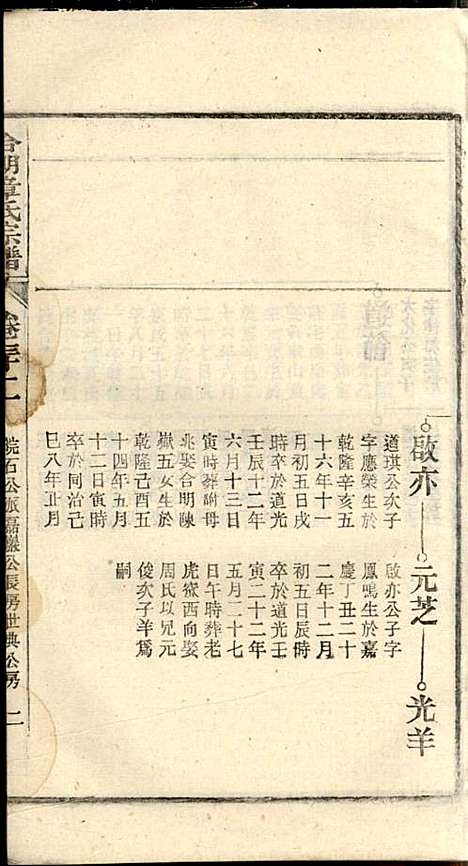 啟亦
元芝
光羊
道琪公次子
字應榮生於
乾隆辛亥五
十六年十一
月初五日戌
時卒於道光
壬辰十二年
六月十三日
寅時葬謝母
兆娶合明陳
嶽五女生於
乾隆己酉五
十四年五月
十二日寅時
卒於同治己
巳八年正月
啟亦公子字
鳳鳴生於嘉
慶丁丑二十
二年十二月
初五日辰時
卒於道光壬
寅二十二年
五月二十七
日午時葬老
虎嶽西向娶
周氏以兄元
俊次子羊爲
嗣
合明章氏宗譜
卷三十二
院石公派磊巖公長房世典公房
二